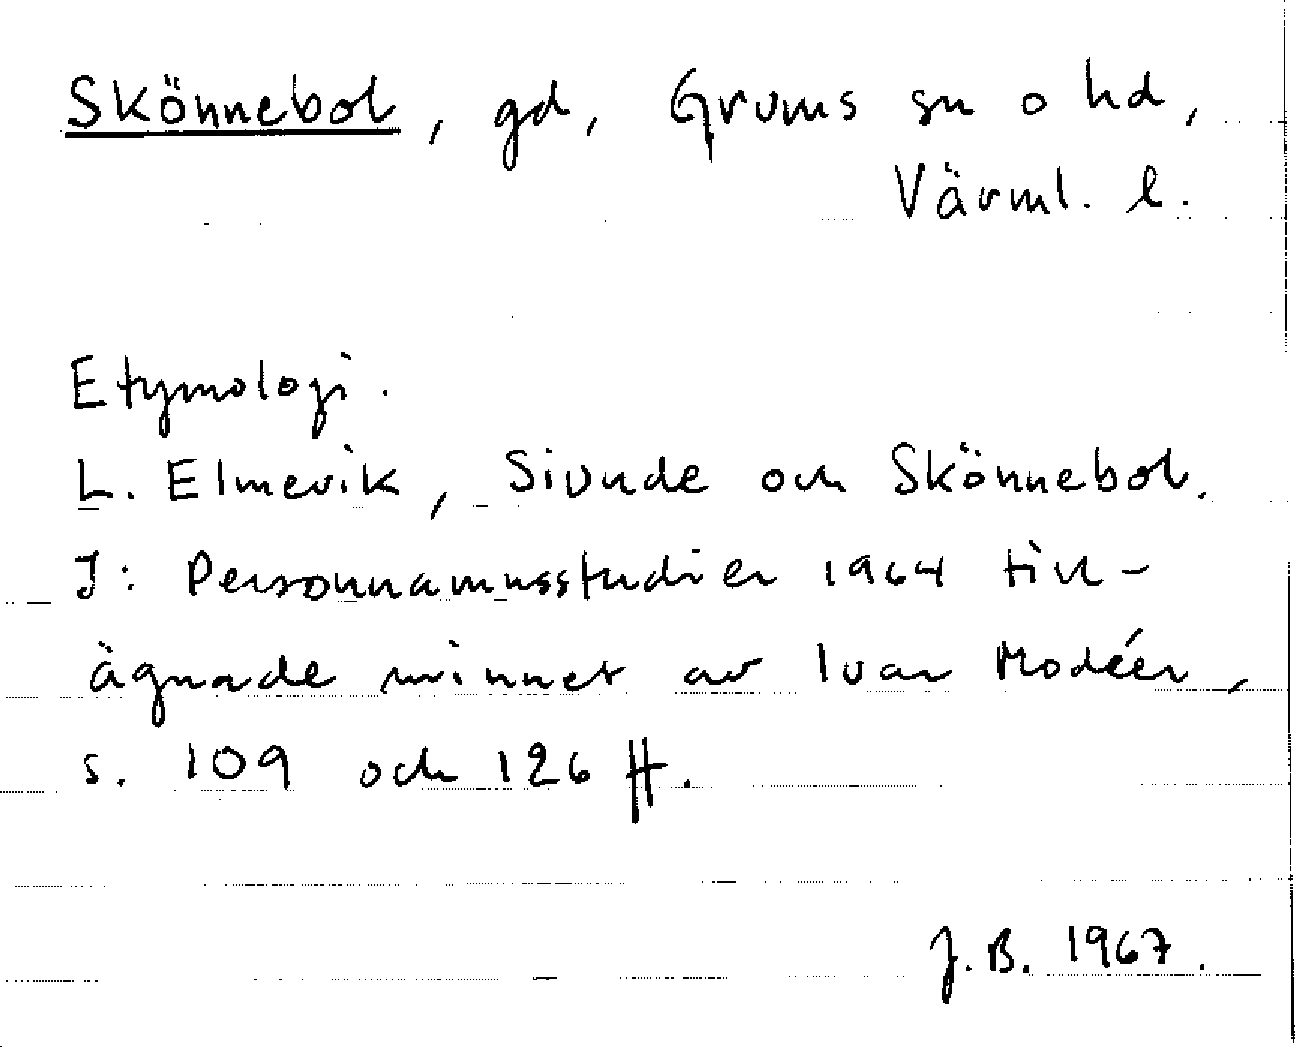 Skönnebol, gd, Grums sn o hd,
Värml. l.
Etymologi.
L. Elmevik, Sivnde och Skönnebol.
I: Personnamnsstudier 1964 till-
ägnade minnet av Ivar Modéer,
s. 109 och 126 ff.
J.B. 1967.